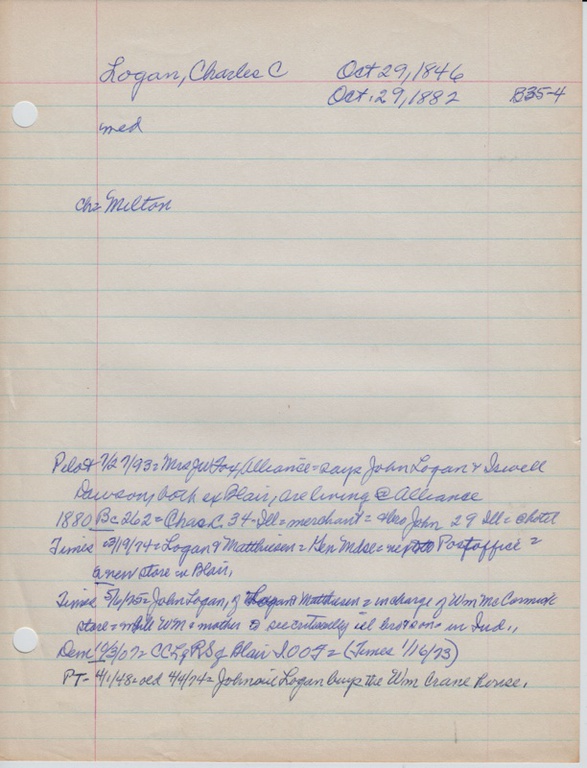 Logan, Charles C Oct 29, 1846
Oct. 29, 1882 B35-4
med
ch= Milton
Pilot 7/27/93= Mrs JW Fox, Alliance = says John Logan & Iswell
Dawson, both ex Blair, are living @ Alliance
1880 Bc 262 = Chas. C. 34-Ill= merchant = also John 29 Ill = @ hotel
Times 3/19/74= Logan & Matthiesen = Gen Mdse = Postoffice =
a new store in Blair.
Times 5/6/75= John Logan, of Logan & Matthiesen = in charge of Wm McCormick
store = while WM = mother is ill in Ind.,
Dem = CCL, of Blair IOOF = (Times 1/16/73)
PT- 4/1/48= old 4/4/74= Johnnie Logan buys the Wm Crane house.